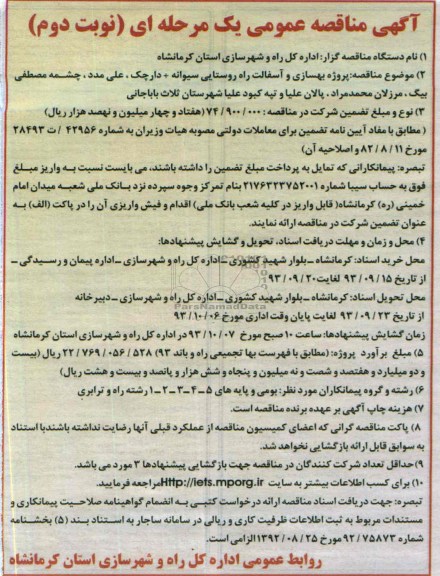 آگهی مناقصه عمومی یک مرحله ای (نوبت دوم)
۱) نام دستگاه مناقصه گزار: اداره کل راه و شهرسازی استان کرمانشاه
۲) موضوع مناقصه:پروژه بهسازی و آسفالت راه روستایی سیوانه + دارچک ، علی مدد ، چشمه مصطفی
بیگ ، مرزلان محمدمراد ، پالان علیا و تپه کبود علیا شهرستان ثلاث باباجانی
۳) نوع و مبلغ تضمین شرکت در مناقصه : ۷۴/۹۰۰/۰۰۰ (هفتاد و چهار میلیون و نهصد هزار ریال)
( مطابق با مفاد آیین نامه تضمین برای معاملات دولتی مصوبه هیات وزیران به شماره ۴۲۹۵۶ / ت ۲۸۴۹۳
مورخ ۸۲/۸/۱۱ و اصلاحیه آن)
تبصره: پیمانکارانی که تمایل به پرداخت مبلغ تضمین را داشته باشند، می بایست نسبت به واریز مبلغ
فوق به حساب سیبا شماره ۲۱۷۶۳۲۳۷۵۲۰۰۱ بنام تمرکز وجوه سپرده نزد بانک ملی شعبه میدان امام
خمینی (ره) کرمانشاه( قابل واریز در کلیه شعب بانک ملی) اقدام و فیش واریزی آن را در پاکت (الف) به
عنوان تضمین شرکت در مناقصه ارائه نمایند.
۴) محل و زمان و مهلت دریافت اسناد، تحویل و گشایش پیشنهادها:
محل خرید اسناد: کرمانشاه ـ بلوار شهید کشوری ـ اداره کل راه و شهرسازی ـ اداره پیمان و رسیدگی ـ
از تاریخ ۹۳/۰۹/۱۵ لغایت ۹۳/۰۹/۲۰
محل تحویل اسناد: کرمانشاه ـ بلوار شهید کشوری ـ اداره کل راه و شهرسازی ـ دبیرخانه
از تاریخ ۹۳/۰۹/۲۳ لغایت پایان وقت اداری مورخ ۹۳/۱۰/۰۶
زمان گشایش پیشنهادها: ساعت ۱۰ صبح مورخ ۹۳/۱۰/۰۷ در اداره کل راه و شهرسازی استان کرمانشاه
۵) مبلغ برآورد پروژه: (مطابق با فهرست بها تجمیعی راه و باند ۹۳) ۲۲/۷۶۹/۰۵۶/۵۲۸ ریال (بیست
و دو میلیارد و هفتصد و شصت و نه میلیون و پنجاه و شش هزار و پانصد و بیست و هشت ریال)
۶) رشته و گروه پیمانکاران مورد نظر: بومی و پایه های ۵ـ۴ـ۳ـ۲ـ۱ رشته راه و ترابری
۷) هزینه چاپ آگهی بر عهده برنده مناقصه است.
۸) پاکت مناقصه گرانی که اعضای کمیسیون مناقصه از عملکرد قبلی آنها رضایت نداشته باشند با استناد
به سوابق قابل ارائه بازگشایی نخواهد شد.
۹) حداقل تعداد شرکت کنندگان در مناقصه جهت بازگشایی پیشنهادها ۳ مورد می باشد.
۱۰) برای کسب اطلاعات بیشتر به سایت Http://iets.mporg.ir مراجعه فرمایید.
تبصره: جهت دریافت اسناد مناقصه ارائه درخواست کتبی به انضمام گواهینامه صلاحیت پیمانکاری و
مستندات مربوط به ثبت اطلاعات ظرفیت کاری و ریالی در سامانه ساجار به استناد بند (۵) بخشنامه
شماره ۹۲/۷۵۸۷۳ مورخ ۱۳۹۲/۰۸/۲۵ الزامی است.
روابط عمومی اداره کل راه و شهرسازی استان کرمانشاه